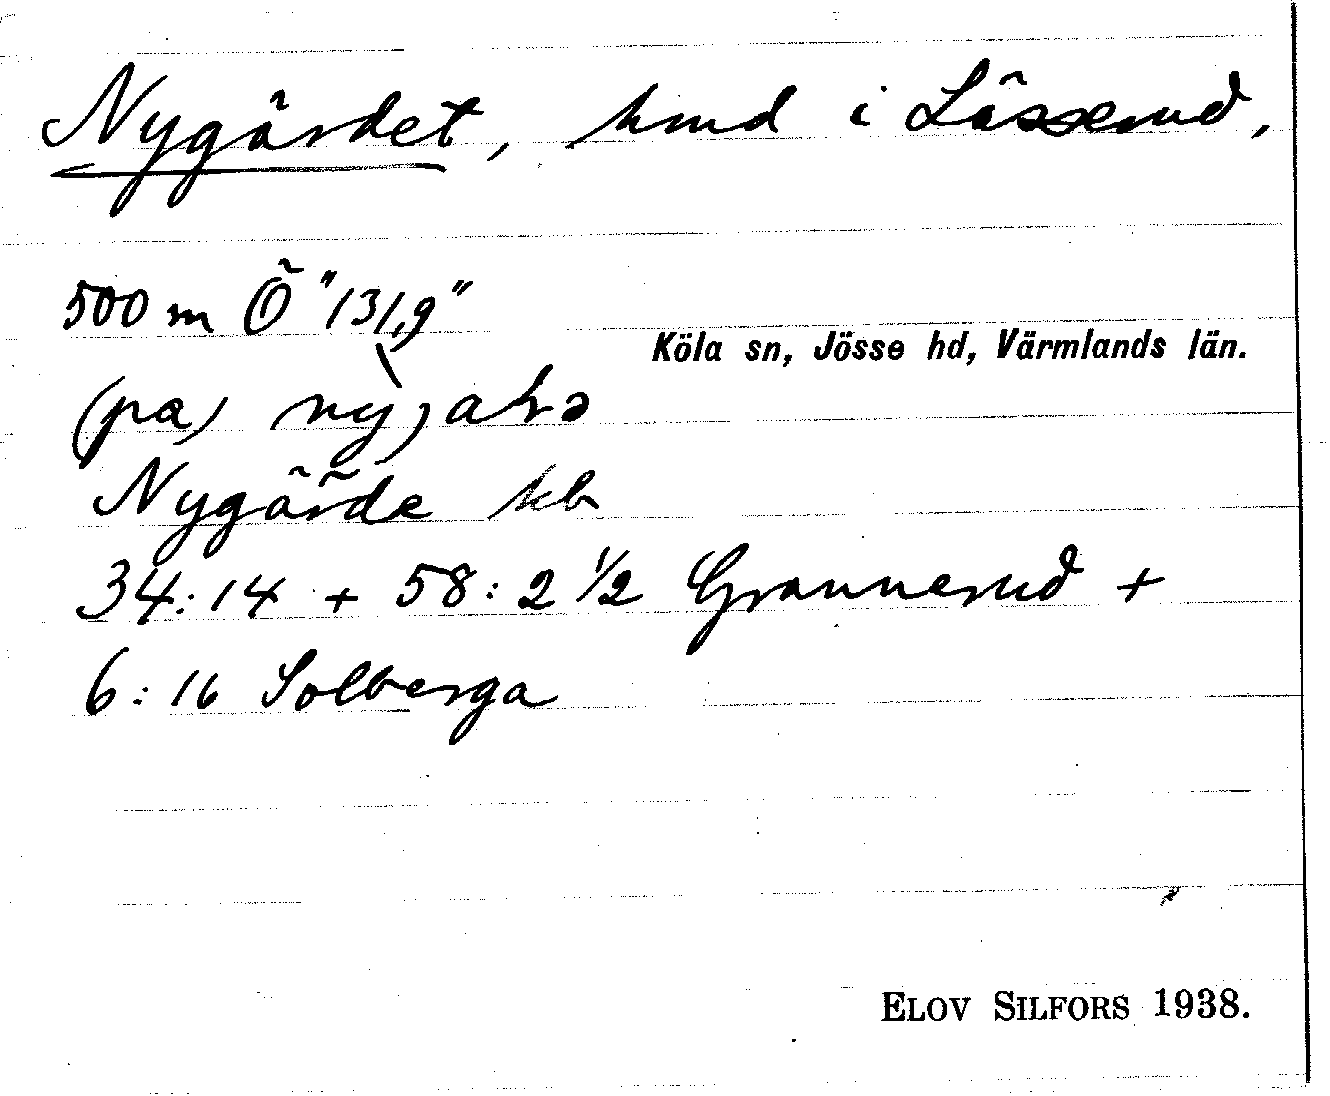 Nygärdet, hmd i Lässerud,
500 m Ö "131,9"
Köla sn, Jösse hd, Värmlands län.
(pa)
Nygärde kb
34:14 + 58:2 1/2 Grannerud +
6:16 Solberga
ELOV SILFORS 1938.